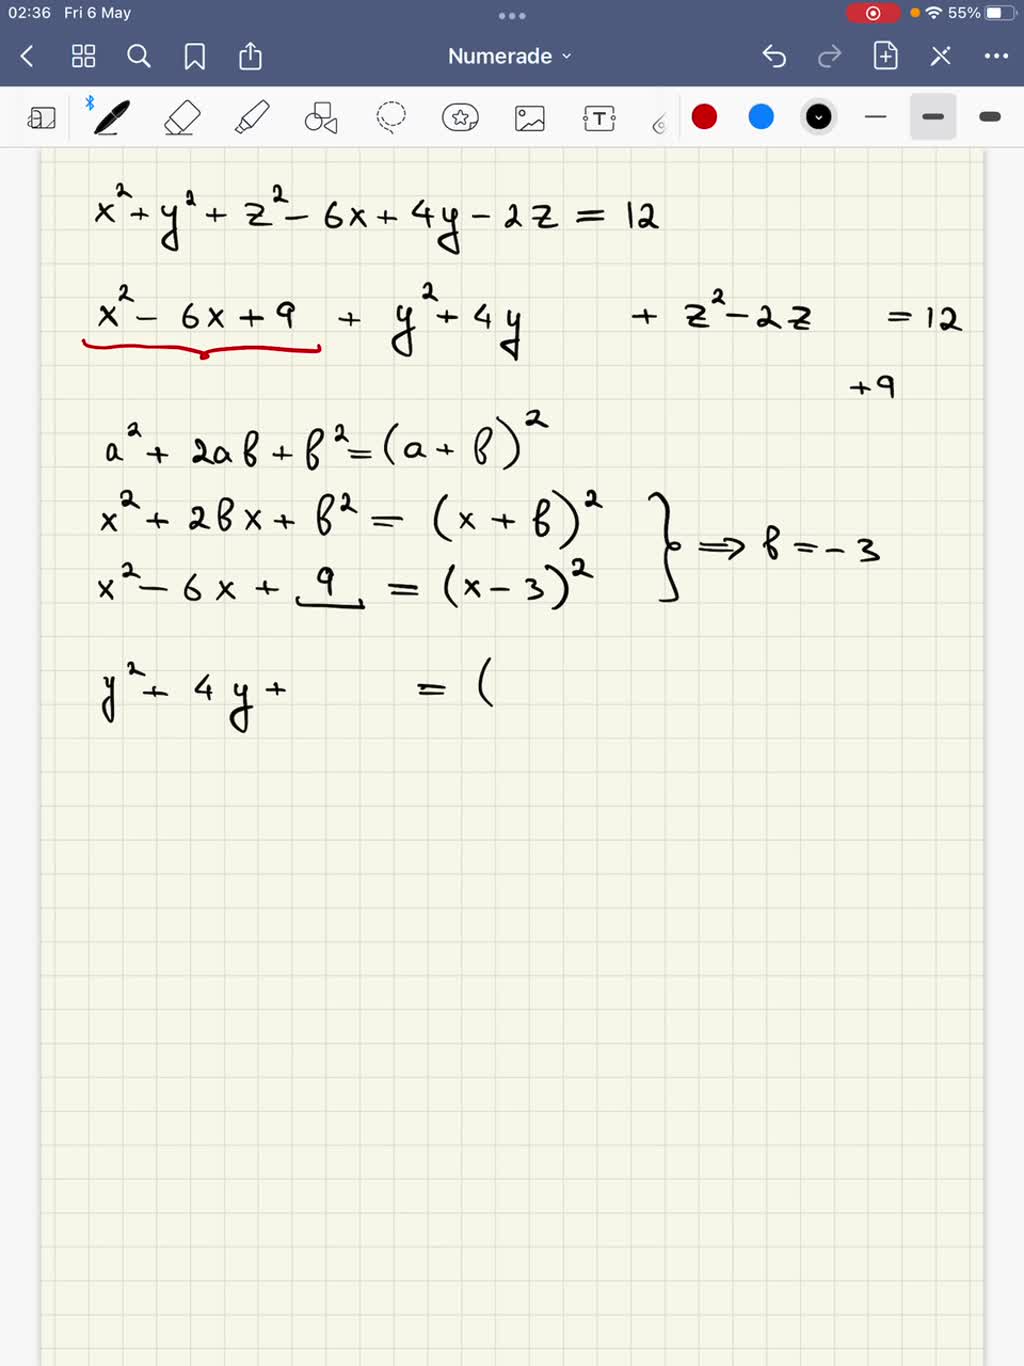 02:36 Fri 6 May 55%
Numerade
T
x² + y² + z² - 6x + 4y - 2z = 12
x² - 6x + 9 + y² + 4y + z² - 2z = 12
+9
a² + 2ab + b² = (a + b)²
x² + 2bx + b² = (x + b)²
x² - 6x + 9 = (x - 3)²
} ⇒ b = -3
y² + 4y + = (